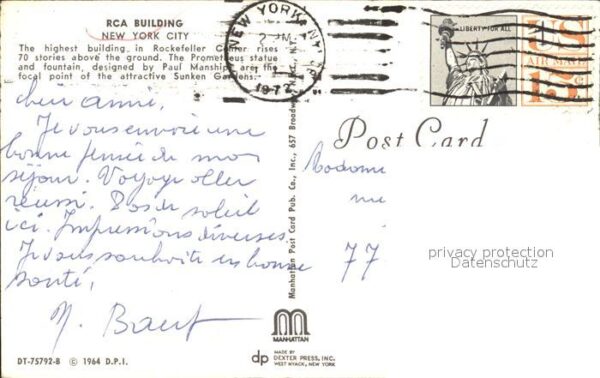 RCA BUILDING
NEW YORK CITY
The highest building in Rockefeller Center rises
70 stories above the ground. The Prometheus statue
and fountain, designed by Paul Manship, are the
focal point of the attractive Sunken Gardens.
NEW YORK, N.Y.
PM
1972
LIBERTY FOR ALL
US
AIR MAIL
15c
Post Card
Cher amie,
Je vous envoie une
bonne pensée de mon
séjour. Voyage aller
réussi. Pas de soleil
ici. Impressions diverses.
Je vous souhaite en bonne
santé,
Madame
77
privacy protection
Datenschutz
Manhattan Post Card Pub. Co., Inc., 657 Broadway, N.Y.
MANHATTAN
DT-75792-B © 1964 D.P.I.
dp MADE BY
DEXTER PRESS, INC.
WEST NYACK, NEW YORK